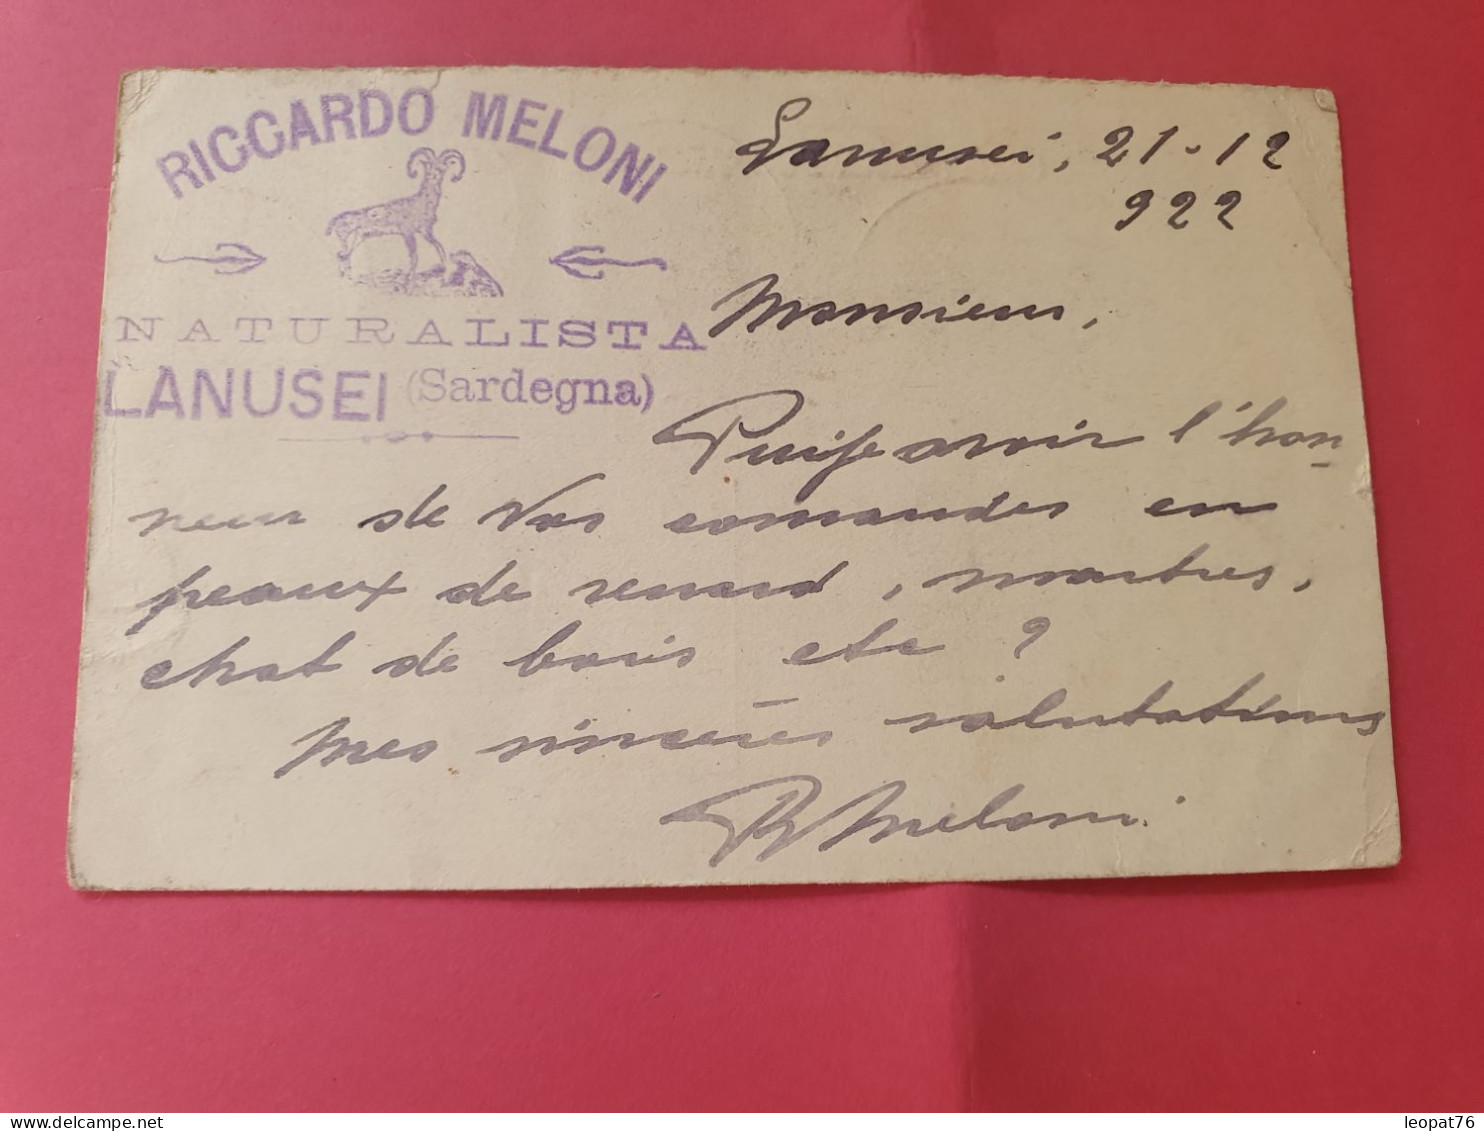 RICCARDO MELONI
NATURALISTA
LANUSEI (Sardegna)
Lanusei, 21-12
922
Monsieur,
Puije avoir l'hon-
neur de Vos comandes en
peaux de renard, martres,
chat de bois etc ?
Mes sincères salutations
R Meloni
delcampe.net
leopat76